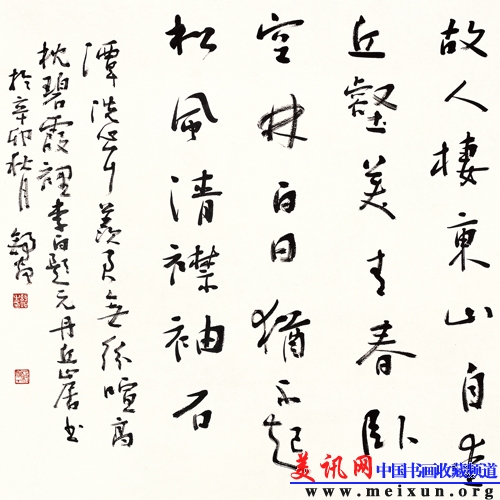 故人棲東山自愛
丘壑美青春臥
空林白日猶不起
松風清襟袖石
潭洗心耳羨君無紛喧高
枕碧霞裡李白題元丹丘山居书
於辛卯秋月
美讯网 中国书画收藏频道
www.meixun.org